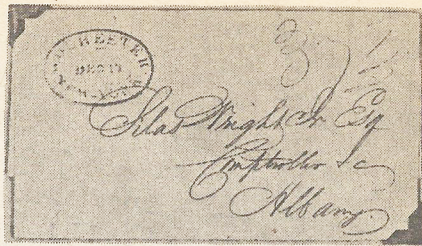 ROCHESTER
DEC 17
NEW-YORK
Silas Wright Jr. Esq
Comptroller &c
Albany.